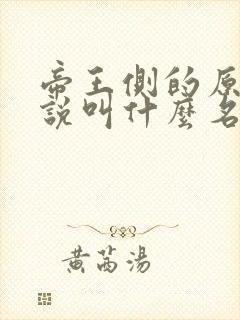 帝王側的原
說叫什麼名
黃萵湯